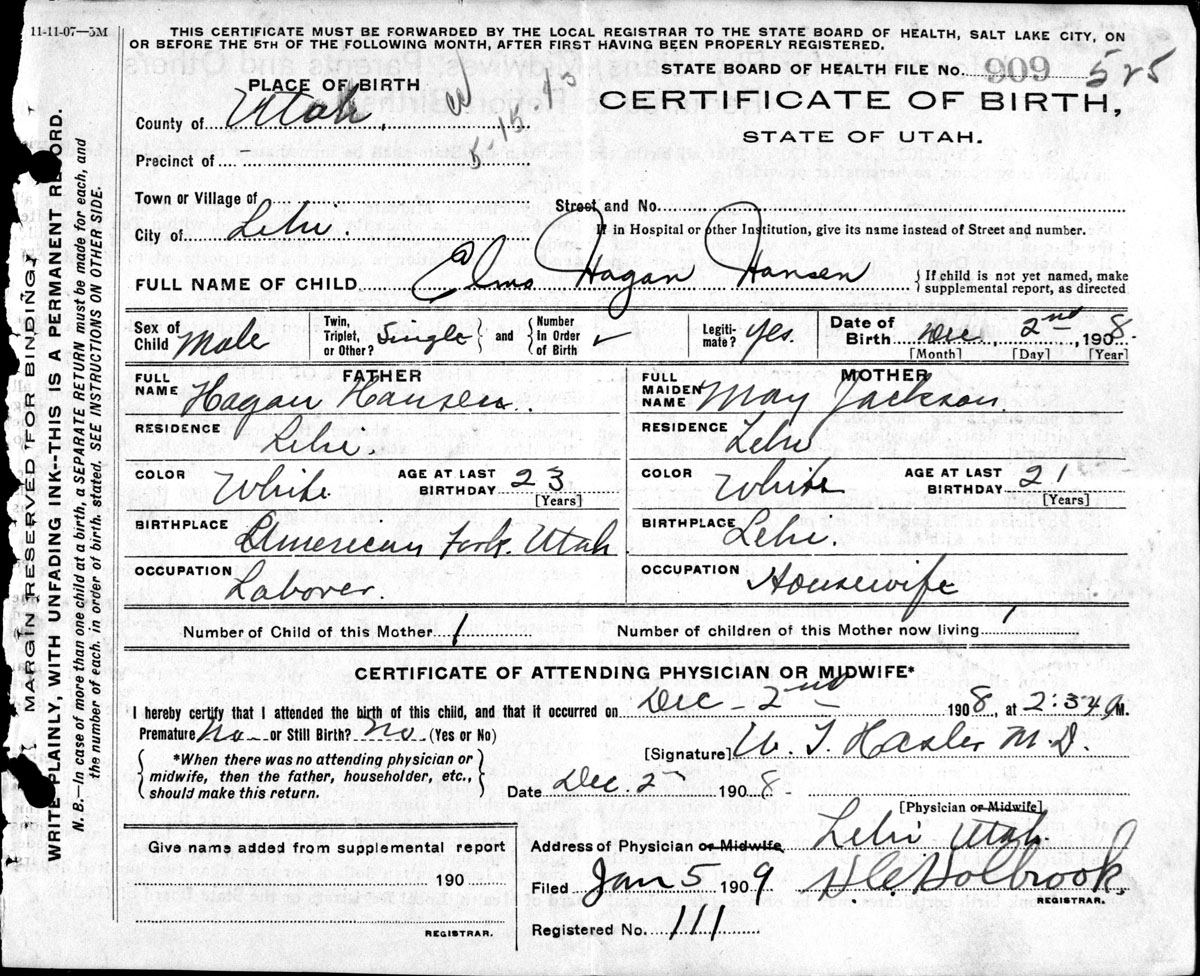 11-11-07—5M
THIS CERTIFICATE MUST BE FORWARDED BY THE LOCAL REGISTRAR TO THE STATE BOARD OF HEALTH, SALT LAKE CITY, ON
OR BEFORE THE 5TH OF THE FOLLOWING MONTH, AFTER FIRST HAVING BEEN PROPERLY REGISTERED.
STATE BOARD OF HEALTH FILE No. 909 525
PLACE OF BIRTH
5-15-43
CERTIFICATE OF BIRTH,
STATE OF UTAH.
County of Utah,
Precinct of
Town or Village of
Street and No.
City of Lehi.
If in Hospital or other Institution, give its name instead of Street and number.
FULL NAME OF CHILD Elmo Hagan Hansen
{If child is not yet named, make
supplemental report, as directed
Sex of Child Male
Twin, Triplet, or Other? Single } and { Number In Order of Birth ✓
Legiti-mate? Yes.
Date of Birth Dec. 2nd, 1908.
[Month] [Day] [Year]
FATHER
FULL NAME Hagan Hansen.
RESIDENCE Lehi.
COLOR White AGE AT LAST BIRTHDAY 23
[Years]
BIRTHPLACE American Fork. Utah.
OCCUPATION Laborer.
MOTHER
FULL MAIDEN NAME May Jackson.
RESIDENCE Lehi
COLOR White AGE AT LAST BIRTHDAY 21
[Years]
BIRTHPLACE Lehi.
OCCUPATION Housewife
Number of Child of this Mother 1 Number of children of this Mother now living 1
CERTIFICATE OF ATTENDING PHYSICIAN OR MIDWIFE*
I hereby certify that I attended the birth of this child, and that it occurred on Dec - 2nd 1908, at 2:34 M.
Premature No or Still Birth? No (Yes or No)
{*When there was no attending physician or
midwife, then the father, householder, etc.,
should make this return.}
[Signature] Hasler M.D.
Date Dec. 2 1908
[Physician or Midwife]
Address of Physician or Midwife Lehi Utah.
Give name added from supplemental report
190
REGISTRAR.
Filed Jan 5 1909 Holbrook.
REGISTRAR.
Registered No. 111
MARGIN RESERVED FOR BINDING
WRITE PLAINLY, WITH UNFADING INK--THIS IS A PERMANENT RECORD.
N. B.—In case of more than one child at a birth, a SEPARATE RETURN must be made for each, and
the number of each, in order of birth, stated. SEE INSTRUCTIONS ON OTHER SIDE.